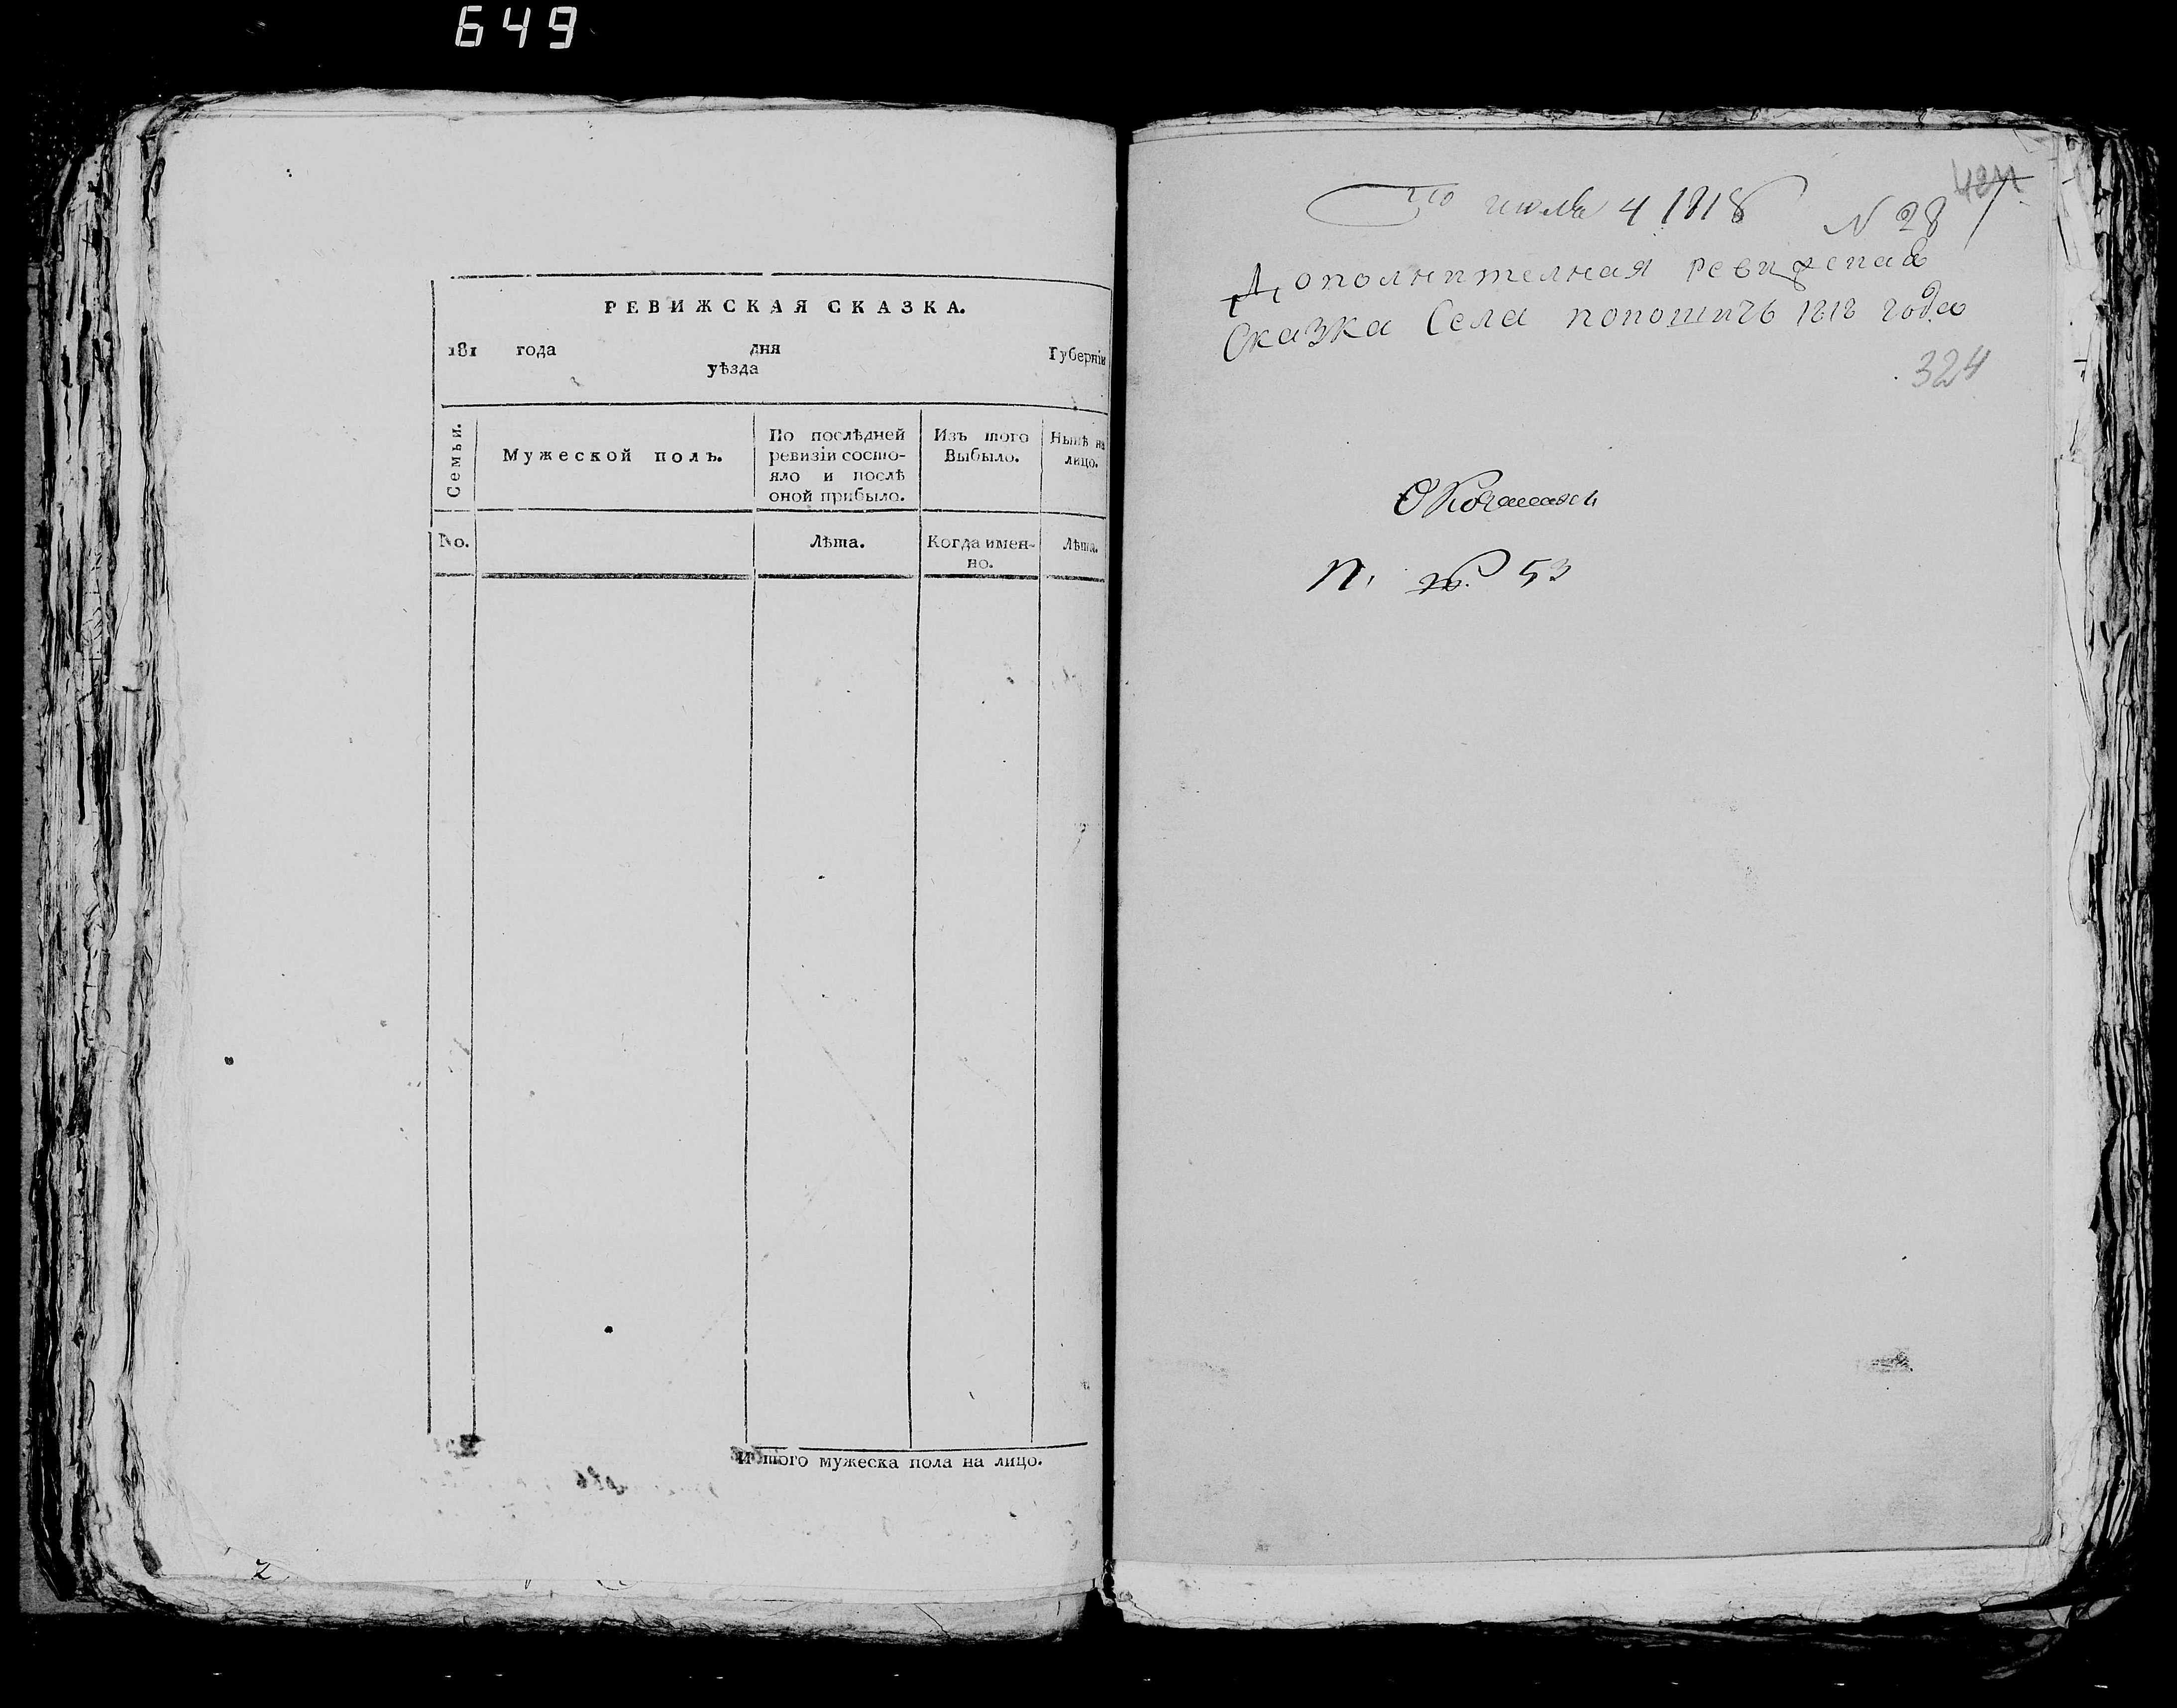 649
РЕВИЖСКАЯ СКАЗКА.
181 года дня Губерніи
уѣзда
Семьи.
Мужеской полъ.
По послѣдней ревизіи состо-
яло и послѣ
оной прибыло.
Изъ того
Выбыло.
Нынѣ на
лицо.
No.
Лѣта.
Когда имен-
но.
Лѣта.
И того мужеска пола на лицо.
2
июля 4 1818 N 28
Дополнителная
Сказка Села 1818 года
324
53